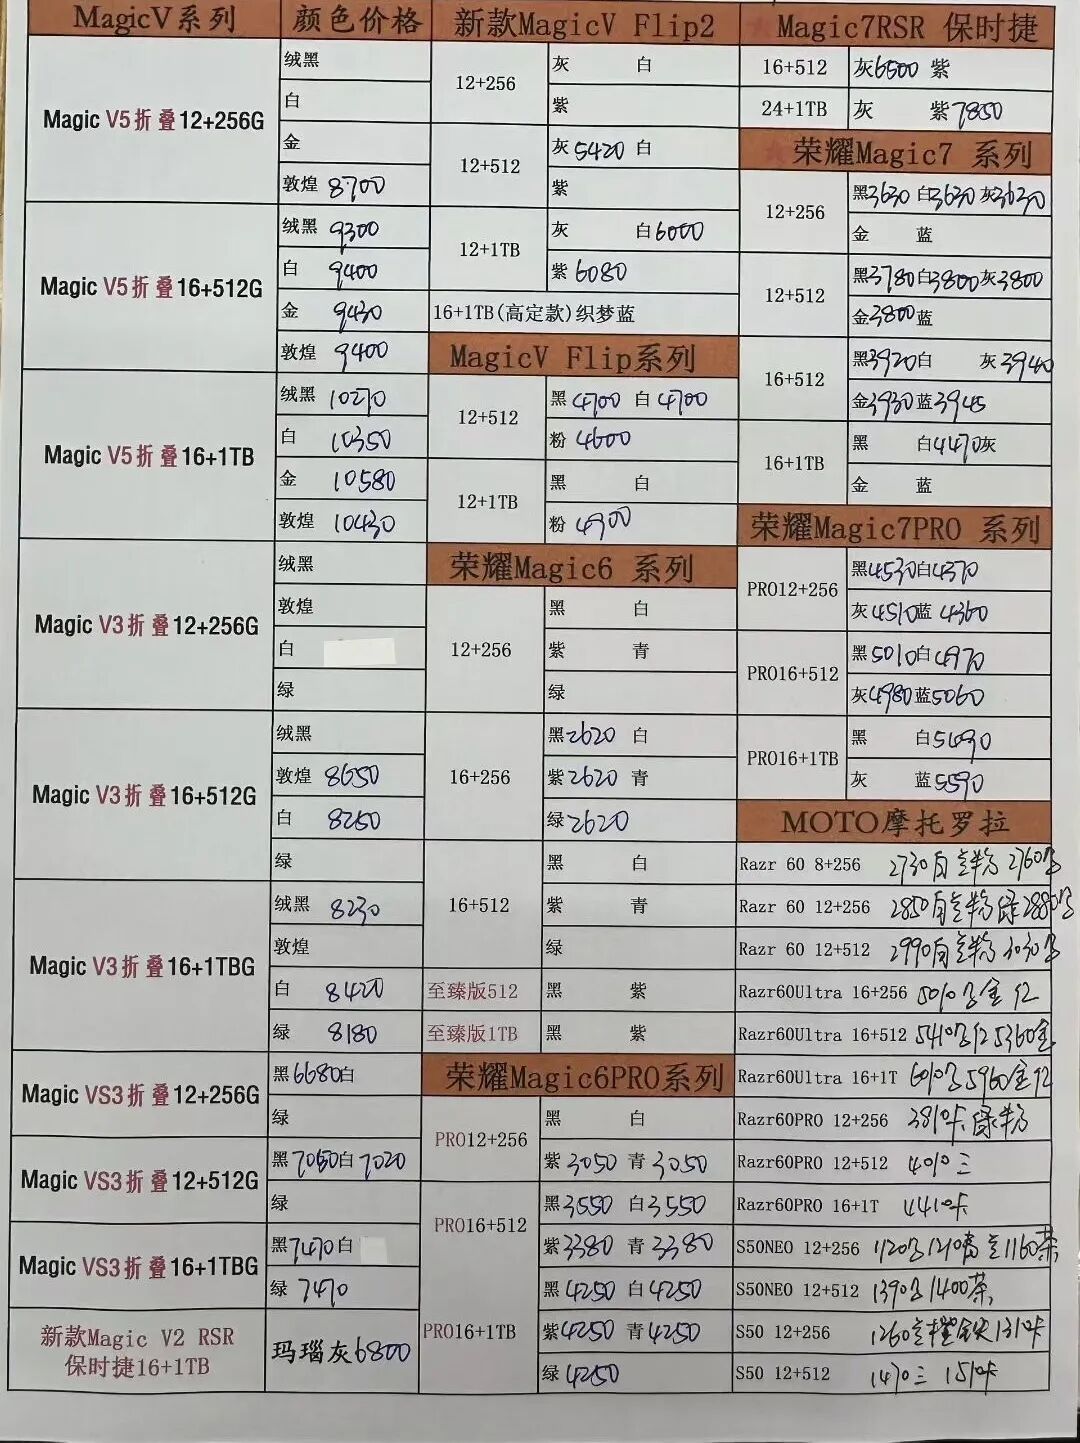 MagicV系列 颜色价格
Magic V5折叠12+256G
绒黑
白
金
敦煌 8700
Magic V5折叠16+512G
绒黑 9300
白 9400
金 9430
敦煌 9400
Magic V5折叠16+1TB
绒黑 10270
白 10350
金 10580
敦煌 10430
Magic V3折叠12+256G
绒黑
敦煌
白
绿
Magic V3折叠16+512G
绒黑
敦煌 8650
白 8250
绿
Magic V3折叠16+1TBG
绒黑 8230
敦煌
白 8420
绿 8180
Magic VS3折叠12+256G
黑6680白
绿
Magic VS3折叠12+512G
黑7050白7020
绿
Magic VS3折叠16+1TBG
黑7470白
绿 7470
新款Magic V2 RSR
保时捷16+1TB
玛瑙灰6800
新款MagicV Flip2
12+256
灰 白
紫
12+512
灰5420 白
紫
12+1TB
灰 白6000
紫 6080
16+1TB(高定款)织梦蓝
MagicV Flip系列
12+512
黑 4700 白 4700
粉 4600
12+1TB
黑 白
粉 4900
荣耀Magic6 系列
12+256
黑 白
紫 青
绿
16+256
黑2620 白
紫2620 青
绿2620
16+512
黑 白
紫 青
绿
至臻版512 黑 紫
至臻版1TB 黑 紫
荣耀Magic6PRO系列
PRO12+256
黑 白
紫3050 青3050
PRO16+512
黑3550 白3550
紫3380 青3380
PRO16+1TB
黑4250 白4250
紫4250 青4250
绿4250
Magic7RSR 保时捷
16+512 灰6500 紫
24+1TB 灰 紫7850
荣耀Magic7 系列
12+256
黑3630 白3630 灰3630
金 蓝
12+512
黑3780白3800灰3800
金3800蓝
16+512
黑3920白 灰3940
金3930蓝3945
16+1TB
黑 白4470灰
金 蓝
荣耀Magic7PRO 系列
PRO12+256
黑4530白4370
灰4510蓝4360
PRO16+512
黑5010白4970
灰4980蓝5060
PRO16+1TB
黑 白5490
灰 蓝5590
MOTO摩托罗拉
Razr 60 8+256 2730 2760
Razr 60 12+256 2850 绿 2880
Razr 60 12+512 2990 3030
Razr60Ultra 16+256 5010 金 红
Razr60Ultra 16+512 5410 红 5360金
Razr60Ultra 16+1T 6010 5960金 红
Razr60PRO 12+256 3810卡 绿 粉
Razr60PRO 12+512 4010三
Razr60PRO 16+1T 4410卡
S50NEO 12+256 1120 1210 1160茶
S50NEO 12+512 1390 1400茶
S50 12+256 1260 1310卡
S50 12+512 1470三 1510卡